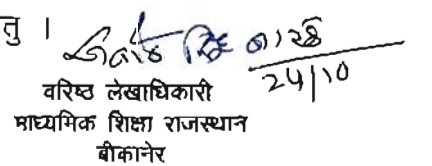 तु ।
24/10
वरिष्ठ लेखाधिकारी
माध्यमिक शिक्षा राजस्थान
बीकानेर